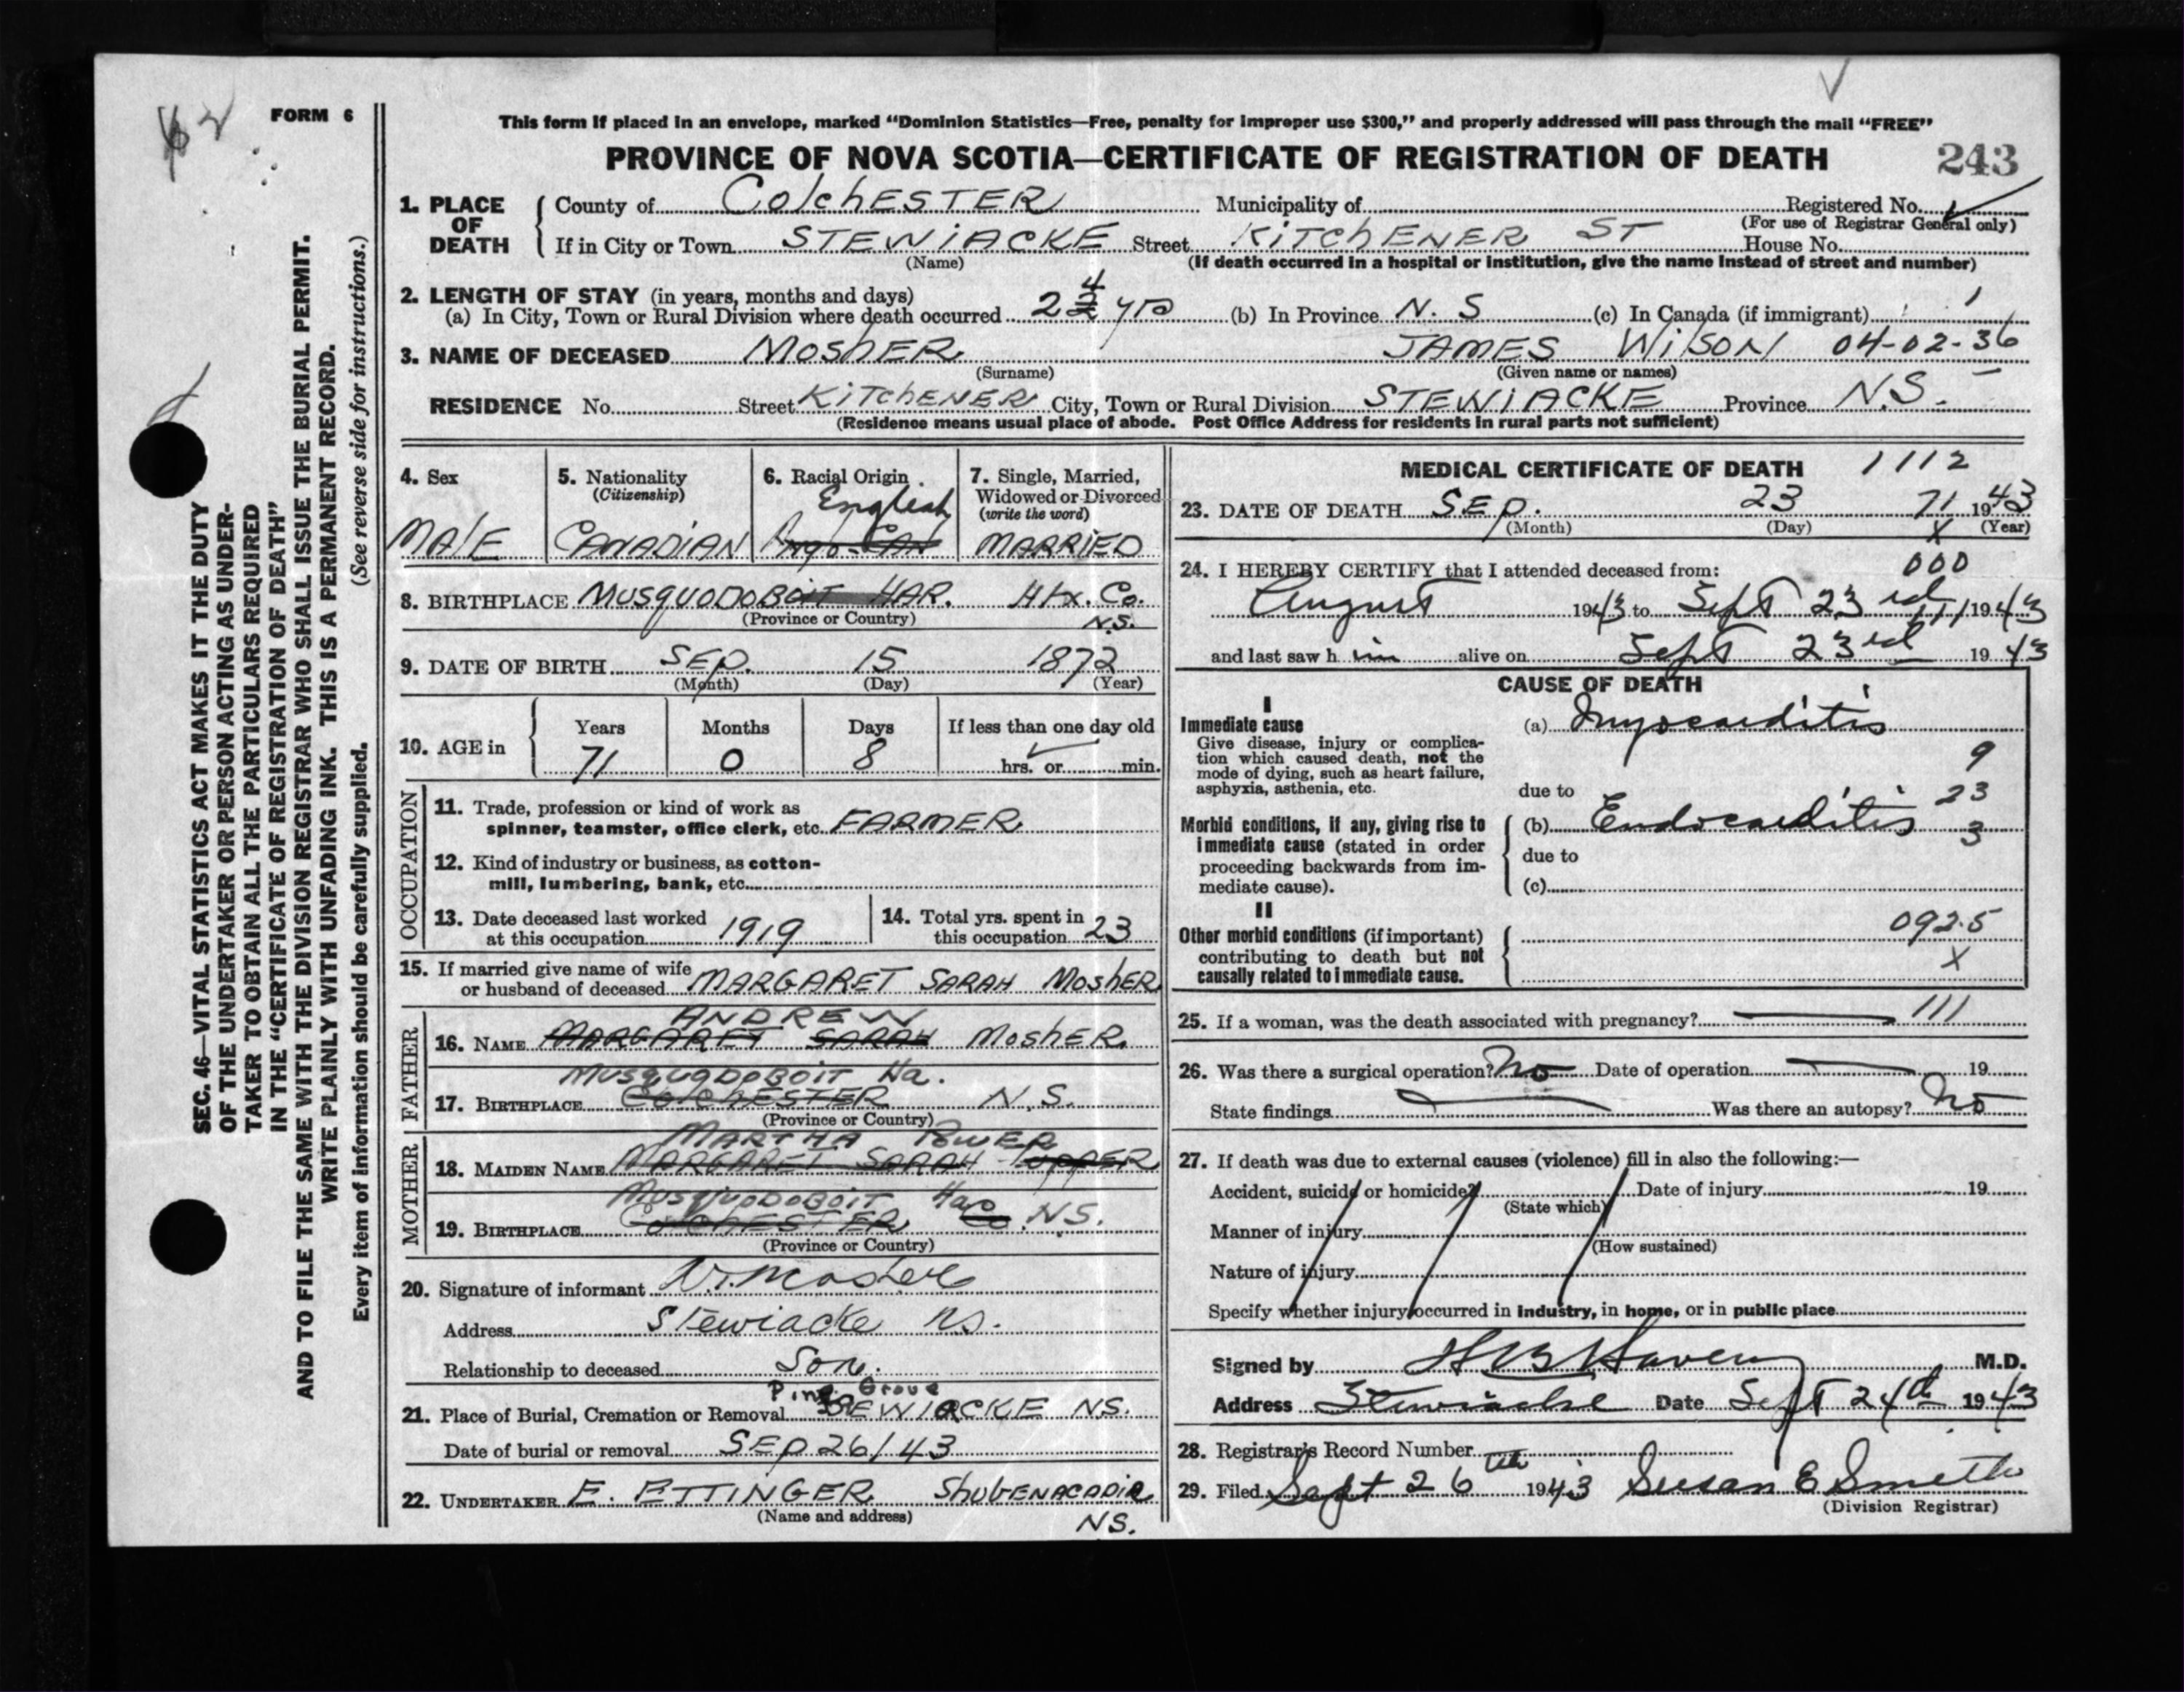 FORM 6
This form if placed in an envelope, marked “Dominion Statistics—Free, penalty for improper use $300,” and properly addressed will pass through the mail “FREE”
PROVINCE OF NOVA SCOTIA—CERTIFICATE OF REGISTRATION OF DEATH
243
1. PLACE OF DEATH
County of ColchESTER Municipality of Registered No.
(For use of Registrar General only)
If in City or Town STEWiACKE Street KiTChENER ST House No.
(Name) (If death occurred in a hospital or institution, give the name instead of street and number)
2. LENGTH OF STAY (in years, months and days)
(a) In City, Town or Rural Division where death occurred 24 yrs (b) In Province N. S (c) In Canada (if immigrant) 1
3. NAME OF DECEASED MoshER JAMES WiLSON 04-02-36
(Surname) (Given name or names)
RESIDENCE No. Street KiTChENER City, Town or Rural Division STEWiACKE Province N.S.
(Residence means usual place of abode. Post Office Address for residents in rural parts not sufficient)
4. Sex
MALE
5. Nationality
(Citizenship)
CANADIAN
6. Racial Origin
English
7. Single, Married, Widowed or Divorced
(write the word)
MARRiED
8. BIRTHPLACE MUSQUODOBOIT HAR. Hfx. Co.
(Province or Country) N.S.
9. DATE OF BIRTH SEp. 15 1872
(Month) (Day) (Year)
10. AGE in
Years Months Days If less than one day old
71 0 8 hrs. or min.
OCCUPATION
11. Trade, profession or kind of work as
spinner, teamster, office clerk, etc. FARMER
12. Kind of industry or business, as cotton-
mill, lumbering, bank, etc.
13. Date deceased last worked
at this occupation 1919
14. Total yrs. spent in
this occupation 23
15. If married give name of wife
or husband of deceased MARGARET SARAH MoshER
FATHER
ANDREW
16. NAME MARGARET SARAH MoshER
MUSQUODOBOIT Ha.
17. BIRTHPLACE ColCHESTER N.S.
(Province or Country)
MOTHER
MARTHA POWER
18. MAIDEN NAME MARGARET SARAH TUPPER
MUSQUODOBOIT Ha
19. BIRTHPLACE COLCHESTER Co. N.S.
(Province or Country)
20. Signature of informant W. Mosher
Address Stewiacke N.S.
Relationship to deceased Son.
Pine Grove
21. Place of Burial, Cremation or Removal STEWIACKE N.S.
Date of burial or removal SEp 26/43
22. UNDERTAKER E. ETTINGER ShubENACADIE
(Name and address) NS.
MEDICAL CERTIFICATE OF DEATH 1112
23. DATE OF DEATH SEp. 23 71 1943
(Month) (Day) X (Year)
24. I HEREBY CERTIFY that I attended deceased from: 000
August 1943 to Sept 23rd 1943
and last saw him alive on Sept 23rd 1943
CAUSE OF DEATH
I
Immediate cause
Give disease, injury or complication which caused death, not the mode of dying, such as heart failure, asphyxia, asthenia, etc.
(a) Myocarditis
9
due to 23
Morbid conditions, if any, giving rise to immediate cause (stated in order proceeding backwards from immediate cause).
(b) Endocarditis 3
due to
(c)
II
Other morbid conditions (if important) contributing to death but not causally related to immediate cause.
092.5
X
25. If a woman, was the death associated with pregnancy? 111
26. Was there a surgical operation? No Date of operation 19
State findings Was there an autopsy? No
27. If death was due to external causes (violence) fill in also the following:—
Accident, suicide or homicide? Date of injury 19
(State which)
Manner of injury
(How sustained)
Nature of injury
Specify whether injury occurred in industry, in home, or in public place
Signed by H B Havey M.D.
Address Stewiacke Date Sept 24th 1943
28. Registrar's Record Number
29. Filed Sept 26th 1943 Susan E Smith
(Division Registrar)
SEC. 46—VITAL STATISTICS ACT MAKES IT THE DUTY
OF THE UNDERTAKER OR PERSON ACTING AS UNDER-
TAKER TO OBTAIN ALL THE PARTICULARS REQUIRED
IN THE “CERTIFICATE OF REGISTRATION OF DEATH”
AND TO FILE THE SAME WITH THE DIVISION REGISTRAR WHO SHALL ISSUE THE BURIAL PERMIT.
WRITE PLAINLY WITH UNFADING INK. THIS IS A PERMANENT RECORD.
Every item of information should be carefully supplied. (See reverse side for instructions.)